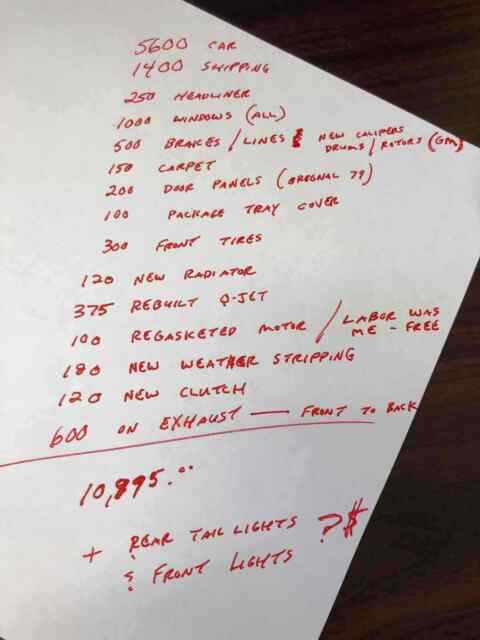 5600 CAR
1400 SHIPPING
250 HEADLINER
1000 WINDOWS (ALL)
500 BRAKES / LINES & NEW CALIPERS
DRUMS / ROTORS (GM)
150 CARPET
200 DOOR PANELS (ORIGNAL 79)
100 PACKAGE TRAY COVER
300 FRONT TIRES
120 NEW RADIATOR
375 REBUILT Q-JET
100 REGASKETED MOTOR / LABOR WAS
ME - FREE
180 NEW WEATHER STRIPPING
120 NEW CLUTCH
600 ON EXHAUST — FRONT TO BACK
10,895.00
+ REAR TAIL LIGHTS ?$
& FRONT LIGHTS